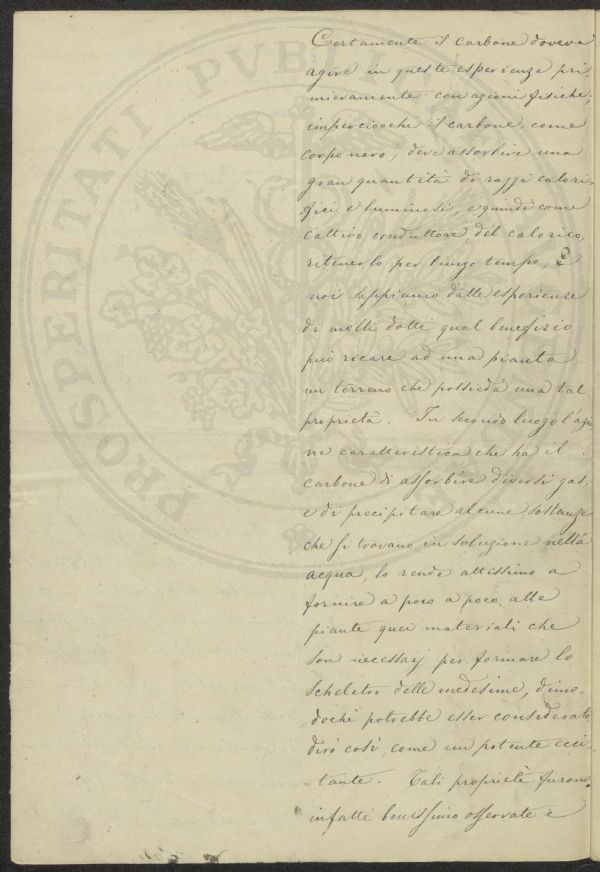 PROSPERITATI PVBL
Certamente il carbone doveva
agire in queste esperienze pri-
mieramente con azioni fisiche,
imperciocchè il carbone, come
corpo nero, deve assorbire una
gran quantità di raggi calori-
fici e luminosi, e quindi come
cattivo conduttore del calorico,
ritenerlo per lungo tempo, E
noi sappiamo dalle esperienze
di molti dotti qual benefizio
può ricare ad una pianta
un terreno che possieda una tal
proprietà. In secondo luogo l'azio
ne caratteristica che ha il
carbone di assorbire diversi gas,
e di precipitare alcune sostanze
che si trovano in soluzione nella
acqua, lo rende attissimo a
fornire a poco a poco alle
piante quei materiali che
son necessarj per formare lo
scheletro delle medesime, dimo-
dochè potrebbe esser considerato
dirò così, come un potente ecci-
tante. Tali proprietà furono
infatti benissimo osservate e